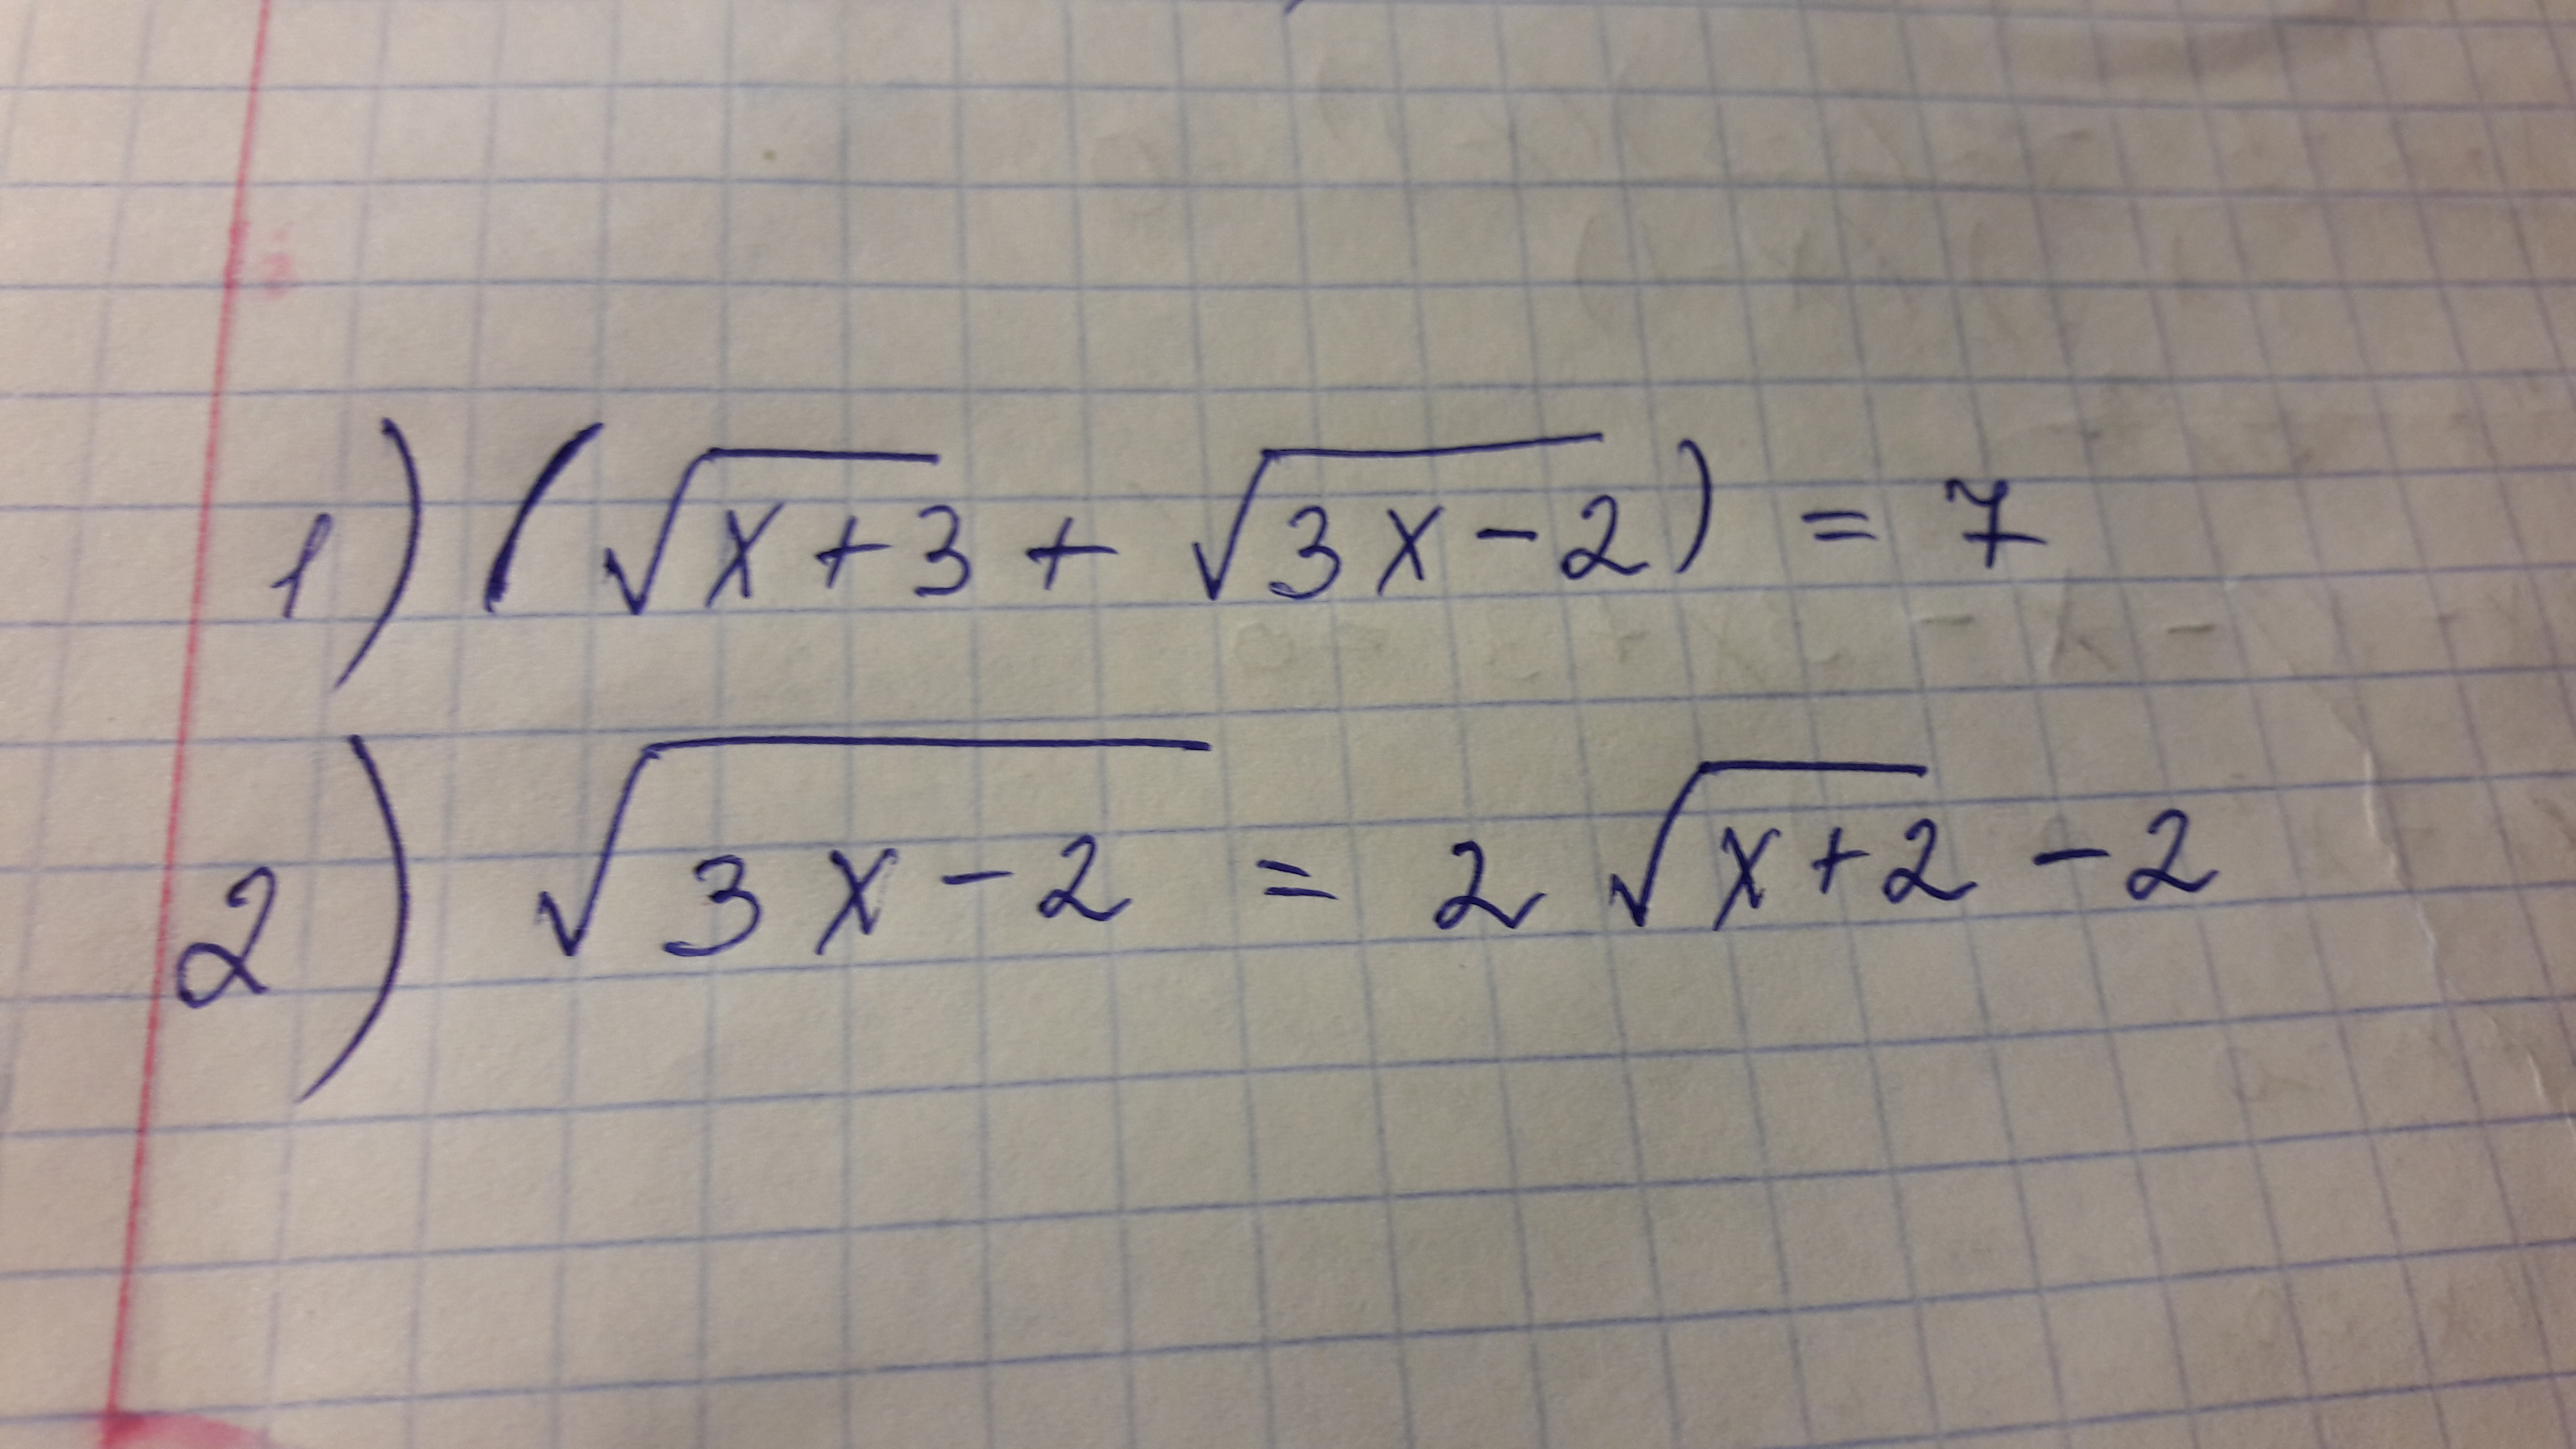 1) (√x+3 + √3x-2) = 7
2) √3x-2 = 2√x+2 -2